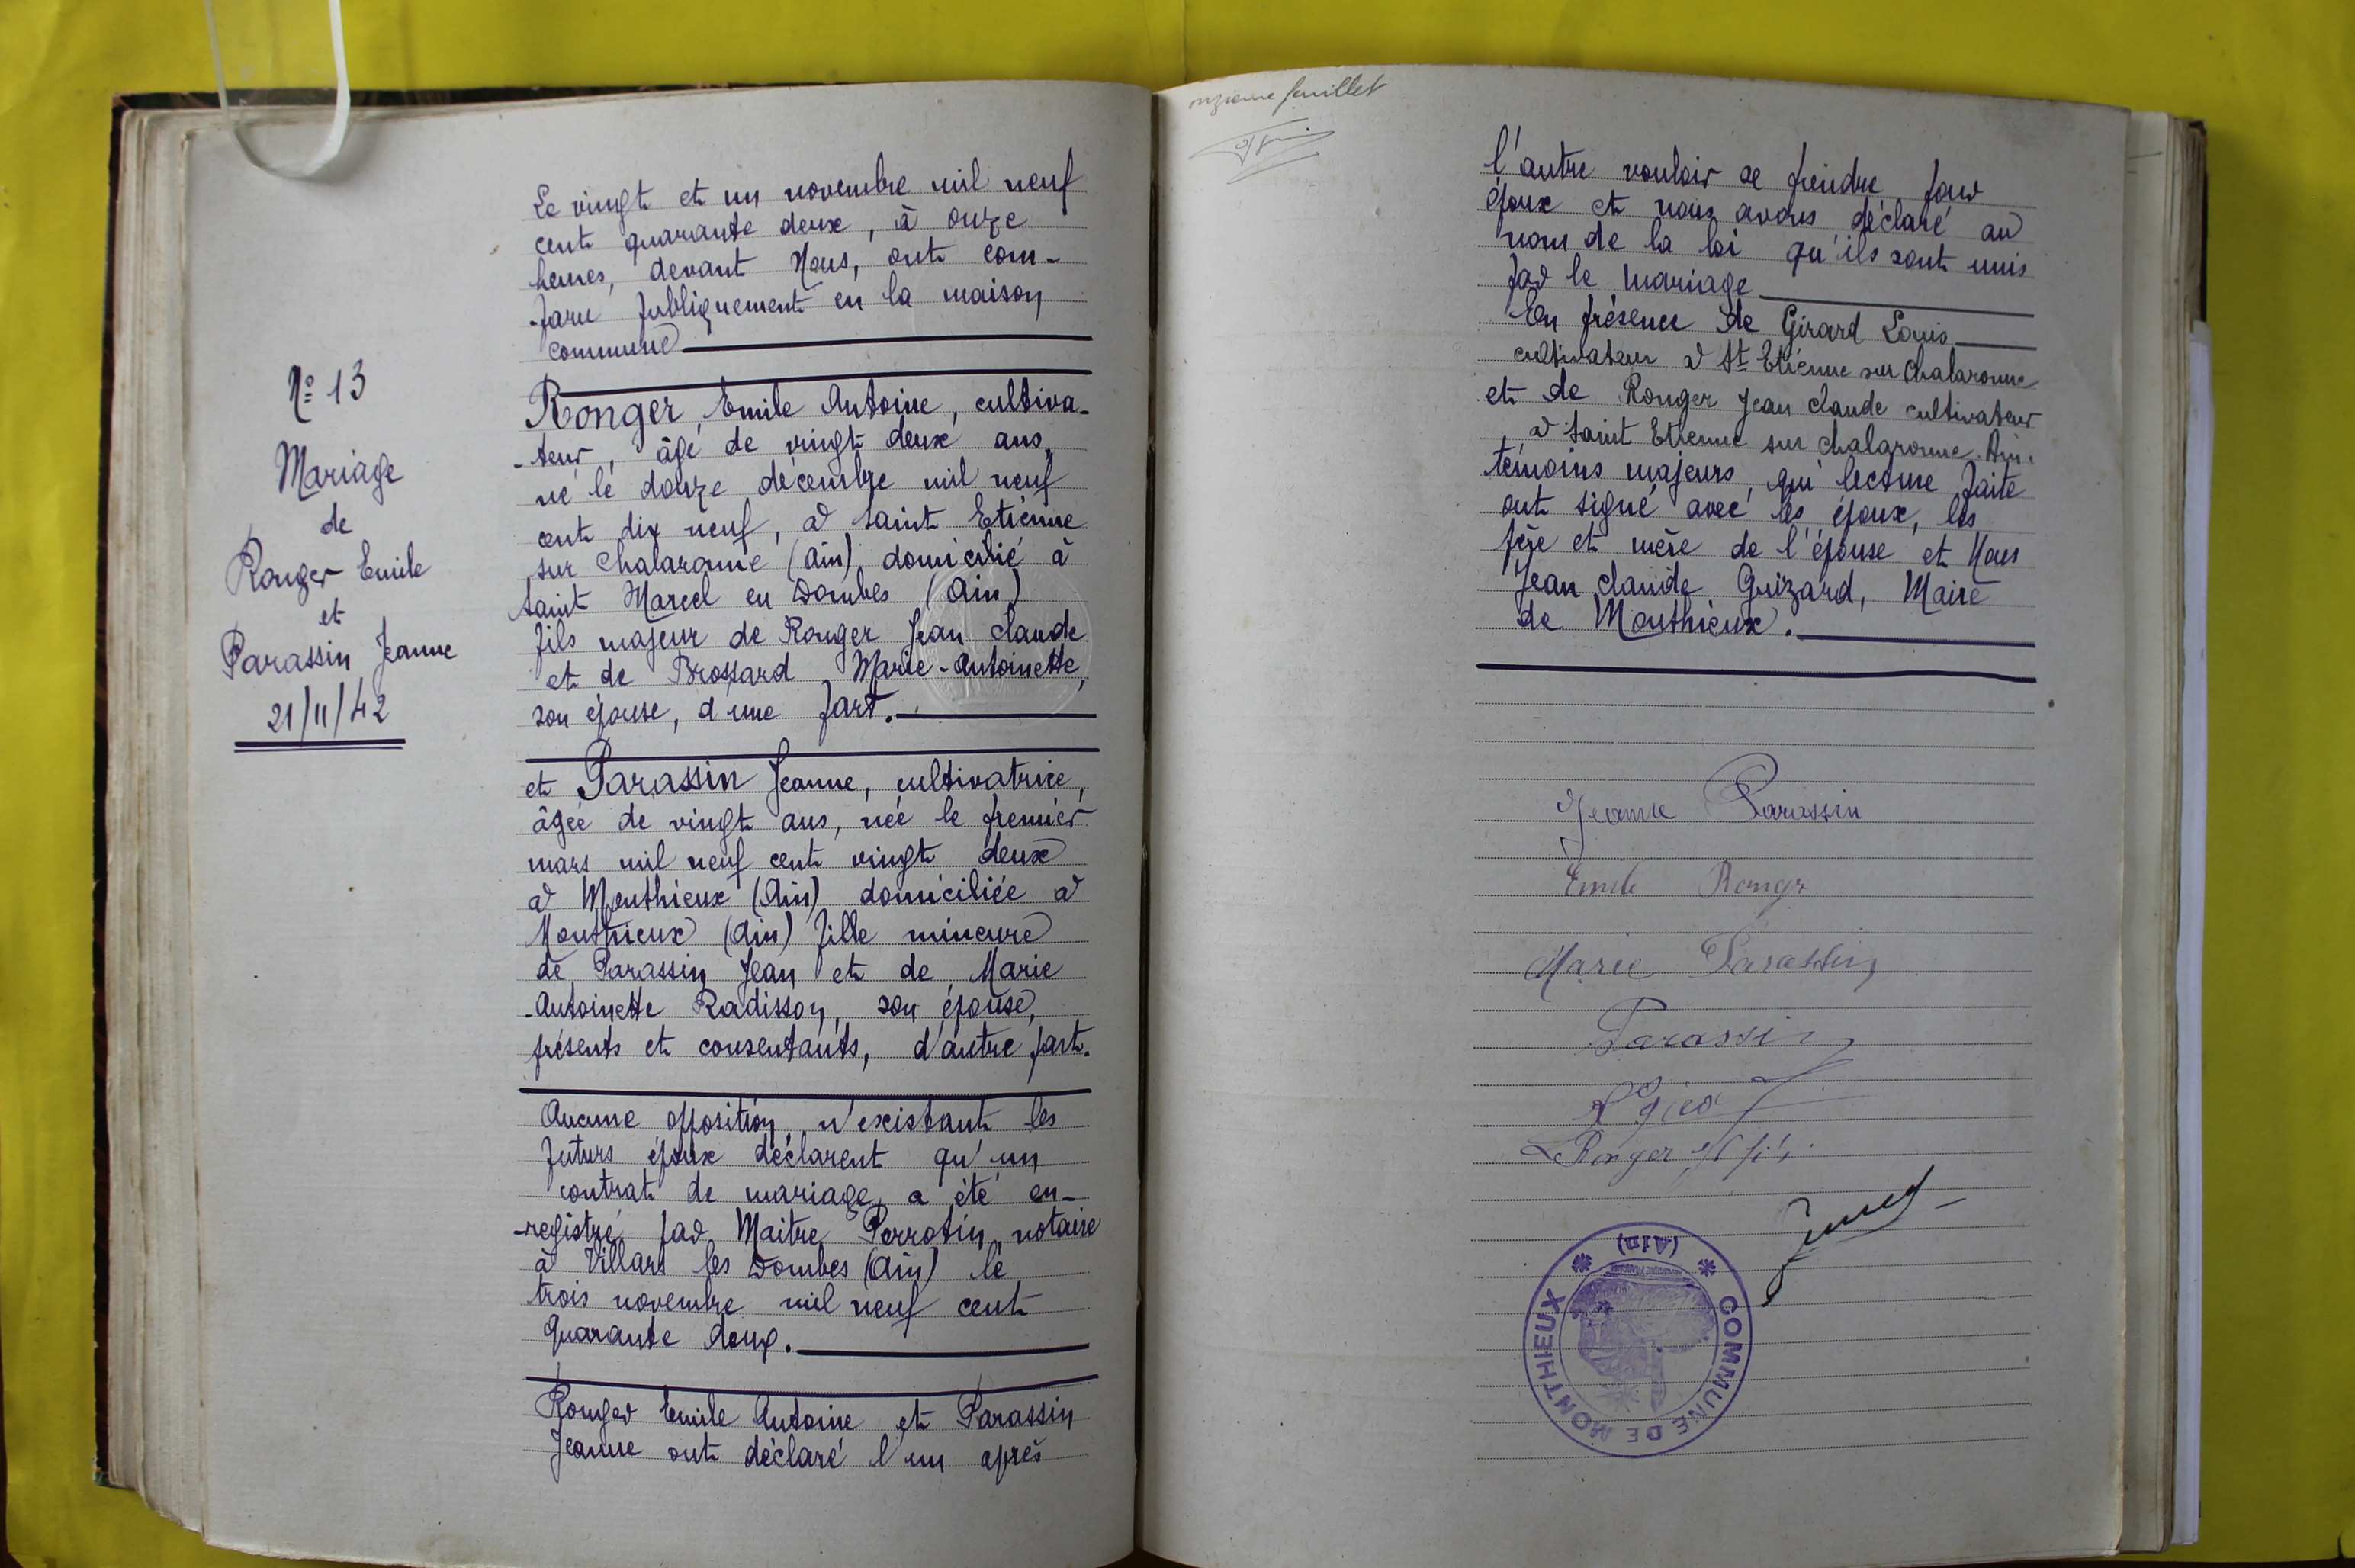 N° 13
Mariage
de
Ronger Emile
et
Parassin Jeanne
21/11/42
Le vingt et un novembre mil neuf
cent quarante deux, à onze
heures, devant Nous, ont com-
-paru publiquement en la maison
commune
Ronger Emile Antoine, cultiva-
-teur, âgé de vingt deux ans,
né le douze décembre mil neuf
cent dix neuf, à Saint Etienne
sur Chalaronne (Ain) domicilié à
Saint Marcel en Dombes (Ain)
fils majeur de Ronger Jean Claude
et de Brossard Marie-Antoinette,
son épouse, d'une part.
et Parassin Jeanne, cultivatrice,
âgée de vingt ans, née le premier
mars mil neuf cent vingt deux
à Monthieux (Ain) domiciliée à
Monthieux (Ain) fille mineure
de Parassin Jean et de Marie
-Antoinette Radisson, son épouse,
présents et consentants, d'autre part.
Aucune opposition n'existant les
futurs époux déclarent qu'un
contrat de mariage a été en-
-registré par Maitre Perrotin notaire
à Villars les Dombes (Ain) le
trois novembre mil neuf cent
quarante deux.
Ronger Emile Antoine et Parassin
Jeanne ont déclaré l'un après
onzième feuillet
l'autre vouloir se prendre pour
époux et nous avons déclaré au
nom de la loi qu'ils sont unis
par le mariage
En présence de Girard Louis
cultivateur à St Etienne sur Chalaronne
et de Ronger Jean Claude cultivateur
à Saint Etienne sur Chalaronne. Ain.
témoins majeurs, qui lecture faite
ont signé avec les époux, les
père et mère de l'épouse et Nous
Jean Claude Guizard, Maire
de Monthieux.
Jeanne Parassin
Emile Ronger
Marie Parassin
Parassin
Ronger
COMMUNE DE MONTHIEUX
(Ain)